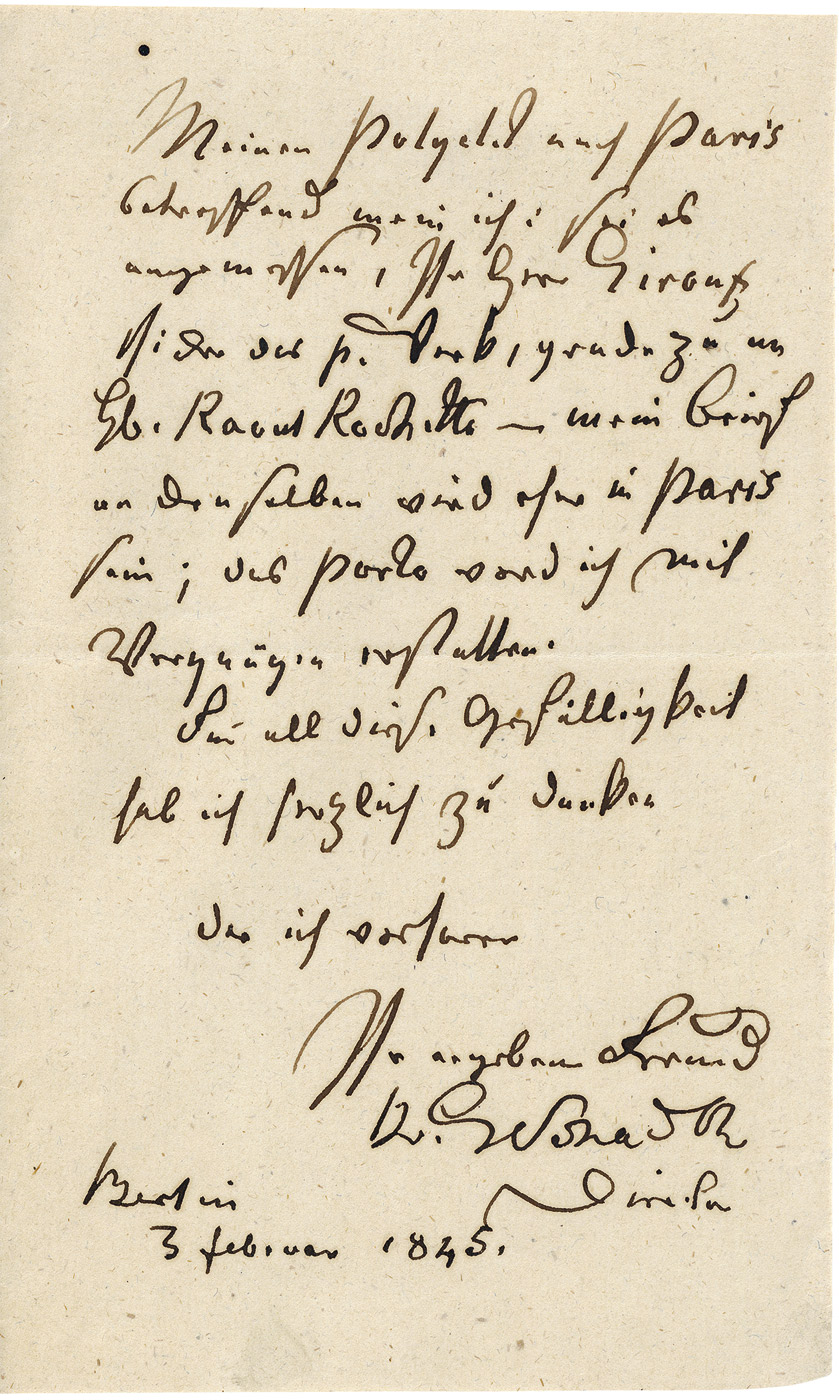 Meinen Polyclet nach Paris
betreffend mein ich: sei es
angemessen, Ihr Herr
das p. Werk, gerade zu an
Raoul Rochette — mein Brief
an denselben wird eher in Paris
sein; das Porto werd ich mit
Vergnügen erstatten.
Für all diese Gefälligkeit
hab ich herzlich zu danken
der ich verharre
Ihr ergebener Freund
Dr. G Schadow
Director
Berlin
3 februar 1845.